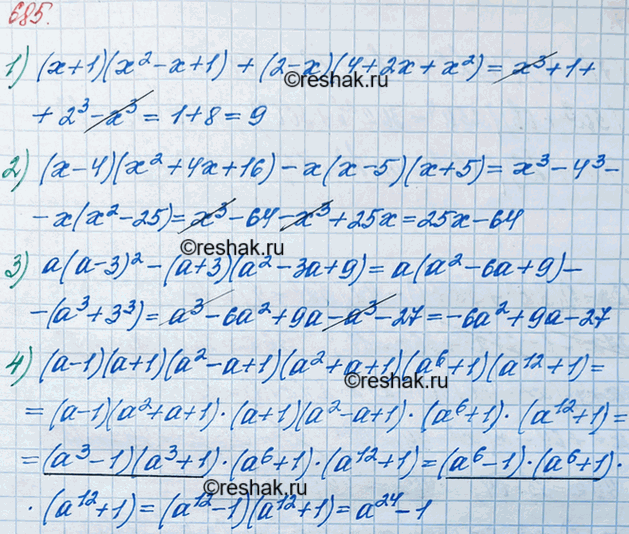 685.
1) (x+1)(x²-x+1) + (2-x)(4+2x+x²) = x³+1+
©reshak.ru
+ 2³ - x³ = 1+8 = 9
2) (x-4)(x²+4x+16) - x(x-5)(x+5) = x³-4³-
- x(x²-25) = x³-64-x³+25x = 25x-64
©reshak.ru
3) a(a-3)² - (a+3)(a²-3a+9) = a(a²-6a+9) -
- (a³+3³) = a³-6a²+9a-a³-27 = -6a²+9a-27
4) (a-1)(a+1)(a²-a+1)(a²+a+1)(a⁶+1)(a¹²+1) =
©reshak.ru
= (a-1)(a²+a+1)·(a+1)(a²-a+1)·(a⁶+1)·(a¹²+1) =
= (a³-1)(a³+1)·(a⁶+1)·(a¹²+1) = (a⁶-1)·(a⁶+1)·
©reshak.ru
·(a¹²+1) = (a¹²-1)(a¹²+1) = a²⁴-1